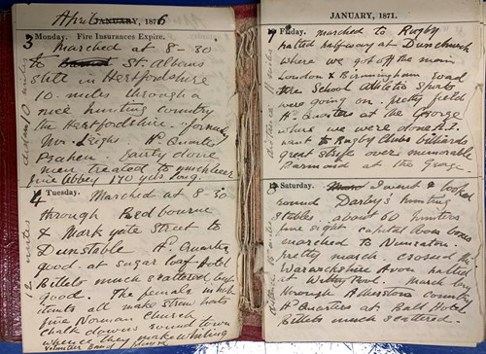 April JANUARY, 1876
3 Monday. Fire Insurances Expire.
Marched at 8-30
to St. Albans
still in Hertfordshire
10 miles through a
nice hunting country
the Hertfordshire formerly
Mr. Leighs Hd Quarters
fairly done
men treated to much beer
fine Abbey 170 yds long.
distance 10 miles
4 Tuesday. Marched at 8-30
through Redbourne
& Markyate Street to
Dunstable Hd Quarters
good at Sugar loaf Hotel
Billets much scattered but
good. The female inhab
itants all make straw hats
fine Norman Church
chalk downs round town
whence they make whiting
Volunteer Band
miles
JANUARY, 1871.
7 Friday. marched to Rugby
halted halfway at Dunchurch
where we got off the main
London & Birmingham road
the School Athletic Sports
were going on. pretty field
Hd Quarters at the George
where we were done A.1.
went to Rugby Clubs billiards
Great style over
at the George.
distance miles
8 Saturday. I went & looked
round Darby's hunting
stables. about 60 hunters
fine sight capital loose boxes
marched to Nuneaton
pretty march crossed the
Warwickshire Avon halted
at march lay
through Atherstone country
Hd Quarters at Bull Hotel
Billets much scattered.
distance miles